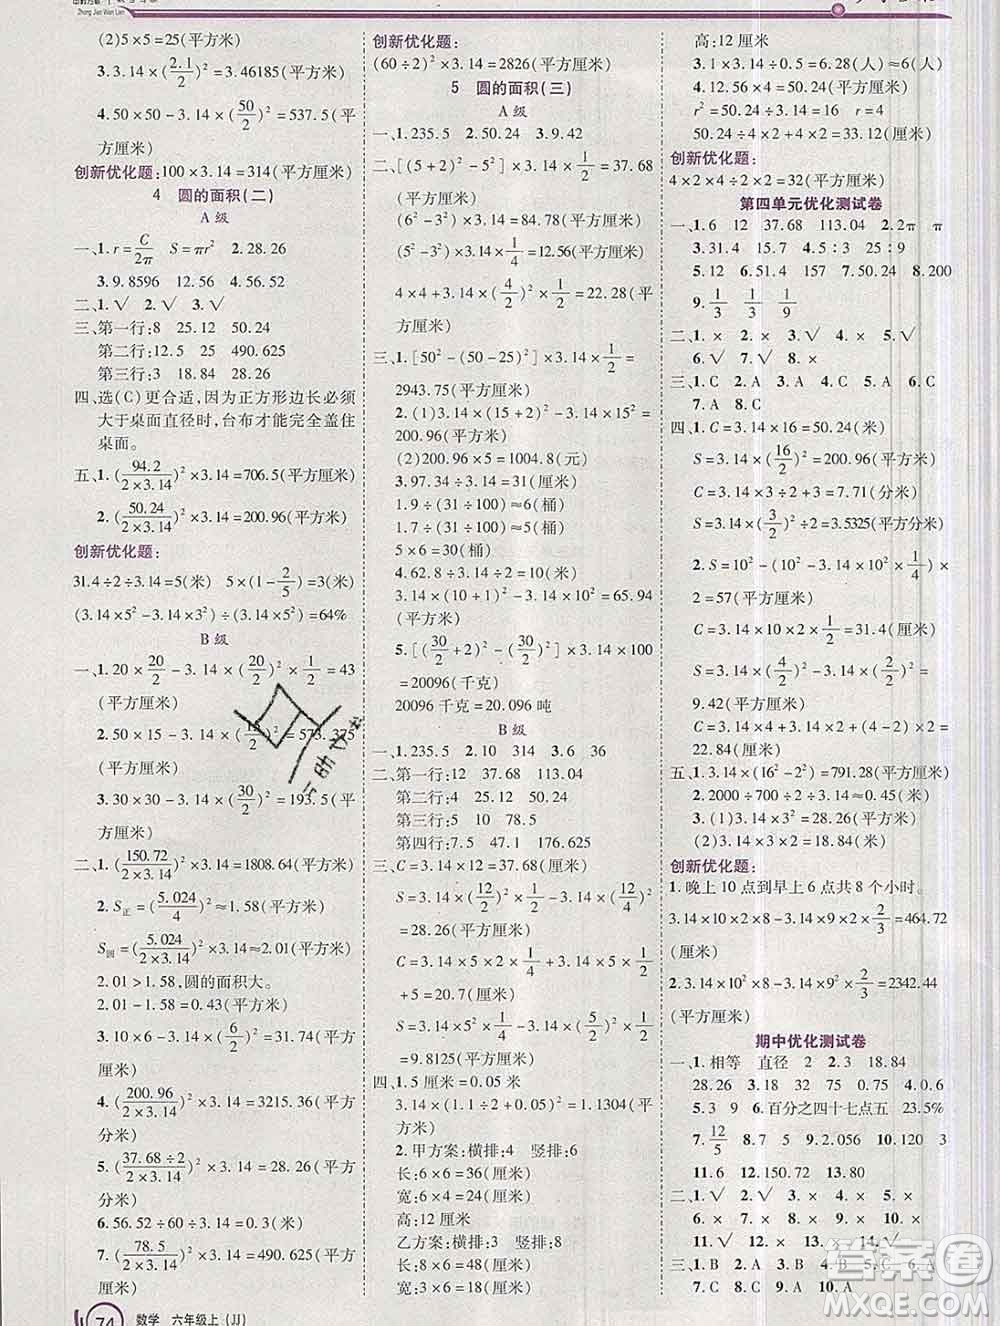 Zhong Jiao Wan Lian
(2)5×5=25(平方米)
3.3.14×(2.1/2)²=3.46185(平方米)
4.50×50-3.14×(50/2)²=537.5(平
方厘米)
创新优化题:100×3.14=314(平方米)
4 圆的面积(二)
A 级
一、1.r=C/2π S=πr² 2.28.26
3.9.8596 12.56 4.56.52
二、1.√ 2.√ 3.√
三、第一行:8 25.12 50.24
第二行:12.5 25 490.625
第三行:3 18.84 28.26
四、选(C)更合适,因为正方形边长必须
大于桌面直径时,台布才能完全盖住
桌面。
五、1.(94.2/2×3.14)²×3.14=706.5(平方厘米)
2.(50.24/2×3.14)²×3.14=200.96(平方米)
创新优化题:
31.4÷2÷3.14=5(米) 5×(1-2/5)=3(米)
(3.14×5²-3.14×3²)÷(3.14×5²)=64%
B 级
一、1.20×20/2-3.14×(20/2)²×1/2=43
(平方厘米)
2.50×15-3.14×(15/2)²=573.375
(平方厘米)
3.30×30-3.14×(30/2)²=193.5(平
方厘米)
二、1.(150.72/2×3.14)²×3.14=1808.64(平方米)
2.S正=(5.024/4)²≈1.58(平方米)
S圆=(5.024/2×3.14)²×3.14≈2.01(平方米)
2.01>1.58,圆的面积大。
2.01-1.58=0.43(平方米)
3.10×6-3.14×(6/2)²=31.74(平方米)
4.(200.96/2×3.14)²×3.14=3215.36(平方
分米)
5.(37.68÷2/2×3.14)²×3.14=28.26(平方
分米)
6.56.52÷3.14÷2=9(米)
7.(78.5/2×3.14)²×3.14=490.625(平
方米)
创新优化题:
(60÷2)²×3.14=2826(平方厘米)
5 圆的面积(三)
A 级
一、1.235.5 2.50.24 3.9.42
二、[(5+2)²-5²]×3.14×1/2=37.68
(平方厘米)
(6²-3²)×3.14=84.78(平方厘米)
(5²-3²)×3.14×1/4=12.56(平方厘米)
4×4+3.14×(4/2)²×1/2=22.28(平
方厘米)
三、1.[50²-(50-25)²]×3.14×1/2=
2943.75(平方厘米)
2.(1)3.14×(15+2)²-3.14×15²=
200.96(平方厘米)
(2)200.96×5=1004.8(元)
3.97.34÷3.14=31(厘米)
1.9÷(31÷100)≈6(桶)
1.7÷(31÷100)≈5(桶)
5×6=30(桶)
4.62.8÷2÷3.14=10(厘米)
3.14×(10+1)²-3.14×10²=65.94
(平方厘米)
5.[(30/2+2)²-(30/2)²]×3.14×100
=20096(千克)
20096千克=20.096吨
B 级
一、1.235.5 2.10 314 3.6 36
二、第一行:12 37.68 113.04
第二行:4 25.12 50.24
第三行:5 10 78.5
第四行:7.5 47.1 176.625
三、C=3.14×12=37.68(厘米)
S=3.14×(12/2)²-3.14×(12/2)²×1/2
=28.26(平方厘米)
C=3.14×5×2×1/4+3.14×5×1/2
+5=20.7(厘米)
S=3.14×5²×1/4-3.14×(5/2)²×1/2
=9.8125(平方厘米)
四、1.5厘米=0.05米
3.14×(1.1÷2+0.05)²=1.1304(平
方米)
2.甲方案:横排:4 竖排:6
长:6×6=36(厘米)
宽:6×4=24(厘米)
高:12厘米
乙方案:横排:3 竖排:8
长:6×8=48(厘米)
宽:6×3=18(厘米)
高:12厘米
3.1×3.14×2÷0.5=6.28(人)≈6(人)
4.12.56×4=50.24(平方厘米)
r²=50.24÷3.14=16 r=4
50.24÷2+4×4=41.12(平方厘米)
创新优化题:
4×2×4÷2×2=32(平方厘米)
第四单元优化测试卷
一、1.6 12 37.68 113.04 2.2π π
3.31.4 15.7 4.5∶3 25∶9
5.12 6.51.4 157 7.50.24 8.200
9.1/3 1/3 1/9
二、1.× 2.× 3.√ 4.× 5.×
6.√ 7.√ 8.×
三、1.C 2.A 3.A 4.B 5.C 6.C
7.A 8.C
四、1.C=3.14×16=50.24(米)
S=3.14×(16/2)²=200.96(平方米)
C=3.14×3÷2+3=7.71(分米)
S=3.14×(3/2)²÷2=3.5325(平方分米)
2.S=10²×1/2-(10²-3.14×10²×1/4)
×2=57(平方米)
C=3.14×10×1/2+3.14×(10-4)×1/2
+3.14×4×1/2=31.4(厘米)
S=3.14×(4/2)²×1/2+3.14×(2/2)²=
9.42(平方厘米)
C=3.14×4×1/2+3.14×2+(4-2)×2=
22.84(厘米)
五、1.3.14×(16²-2²)=791.28(平方厘米)
2.2000÷700÷2÷3.14≈0.45(米)
3.(1)3.14×12=37.68(米)
(2)3.14×12²=452.16(平方米)
创新优化题:
1.晚上10点到早上6点共8个小时。
3.14×10×2×8-3.14×9×2×2/3=464.72
(厘米)
2.3.14×10²×8-3.14×9²×2/3=2342.44
(平方厘米)
期中优化测试卷
一、1.相等 直径 2 2.3 18.84
28.26 3.18 32 75 0.75 4.×
5.3 9 6.百分之四十七点五 23.5%
7.12/5 8.7 5 9.2.056 10.120 3
11.6 12.150.72 13.80
二、1.√ 2.√ 3.× 4.× 5.× 6.×
7.√ 8.√ 9.× 10.× 11.× 12.×
13.√ 14.√ 15.×
三、1.D 2.A 3.B 4.B 5.C 6.A
7.C 8.C 9.A 10.A
74 数学 六年级上(JJ)
答案圈
MXQE.COM